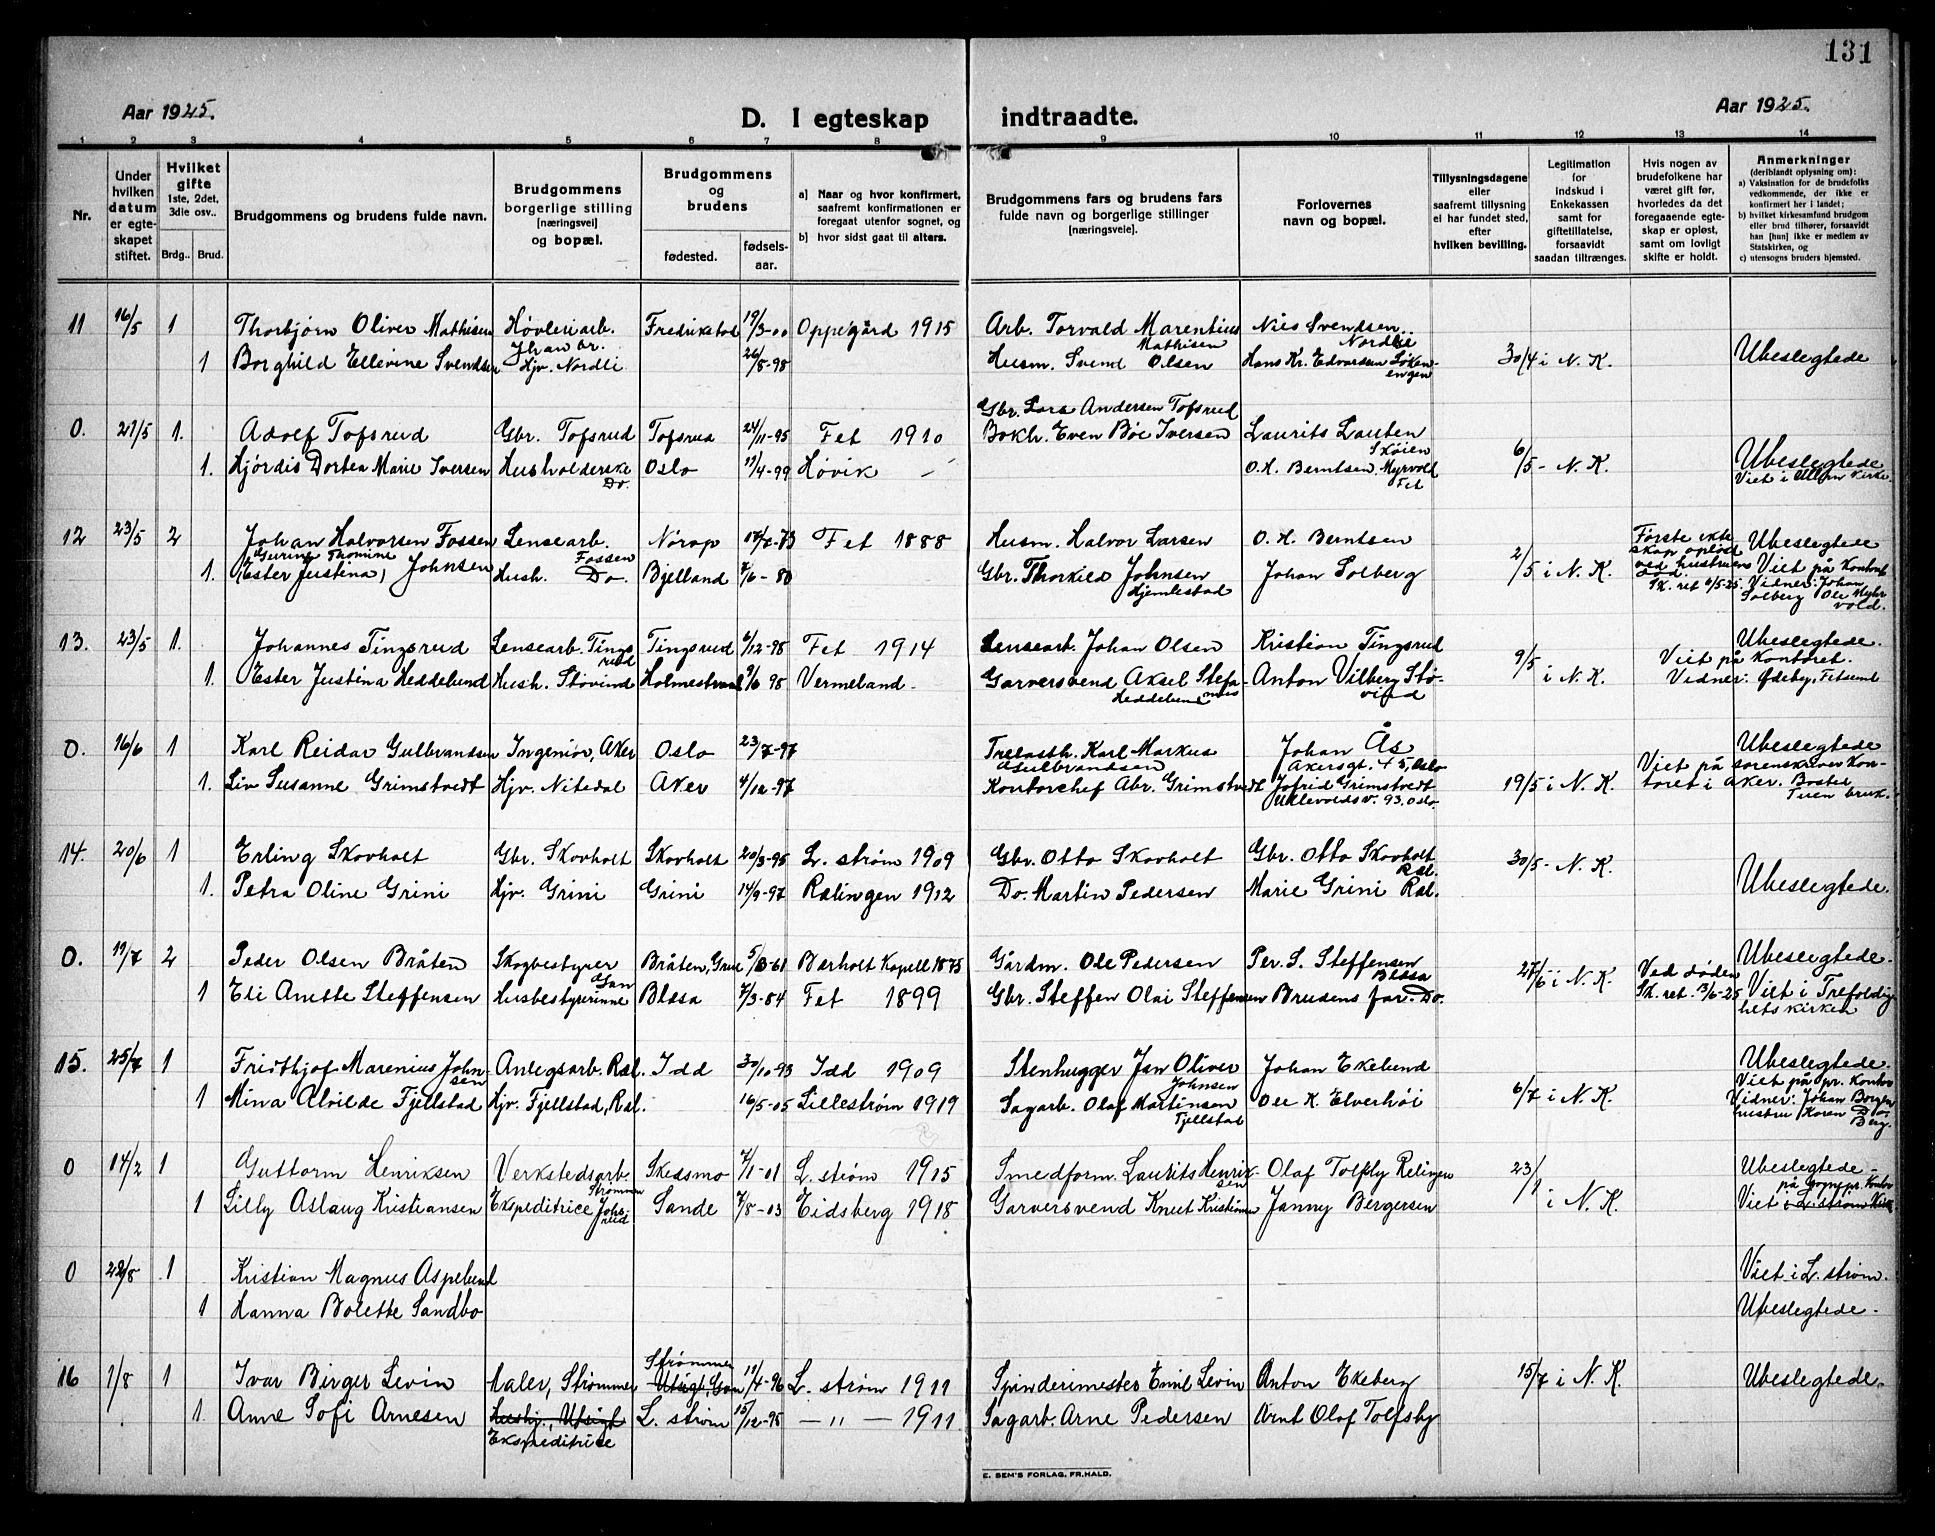 131
Aar 1925.
D. I egteskap indtraadte.
Aar 1925.
1 2 3 4 5 6 7 8 9 10 11 12 13 14
Nr.
Under hvilken datum er egteskapet stiftet.
Hvilket gifte 1ste, 2det, 3die osv..
Brdg.. Brud.
Brudgommens og brudens fulde navn.
Brudgommens borgerlige stilling [næringsvei] og bopæl.
Brudgommens og brudens
fødested.
fødselsaar.
a) Naar og hvor konfirmert, saafremt konfirmationen er foregaat utenfor sognet, og
b) hvor sidst gaat til alters.
Brudgommens fars og brudens fars fulde navn og borgerlige stillinger [næringsveie].
Forlovernes navn og bopæl.
Tillysningsdagene eller saafremt tillysning ei har fundet sted, efter hvilken bevilling.
Legitimation for indskud i Enkekassen samt for giftetillatelse, forsaavidt saadan tiltrænges.
Hvis nogen av brudefolkene har været gift før, hvorledes da det foregaaende egteskap er opløst, samt om lovligt skifte er holdt.
Anmerkninger (deriblandt oplysning om):
a) Vaksination for de brudefolks vedkommende, der ikke er konfirmert her i landet;
b) hvilket kirkesamfund brudgom eller brud tilhører, forsaavidt han [hun] ikke er medlem av Statskirken, og
c) utensogns bruders hjemsted.
11 16/5 1 Thorbjørn Oliver Mathisen Høvleriarb. Fredrikstad 19/3-00 Oppegård 1915 Arb. Torvald Marentius Mathisen Nils Svendsen Nordlie
1 Borghild Ellevine Svendsen Hjv. Nordli 26/8-98 Husm. Svend Olsen Hans Kr. Edvardsen Løkenengen 30/4 i N. K. Ubeslegtede
0. 21/5 1. Adolf Tofsrud Gbr. Tofsrud Tofsrud 24/11-95 Fet 1910 Gbr. Lars Andersen Tofsrud Laurits Lauten Skøien
1. Hjördis Dortea Marie Iversen Husholderske Do. Oslo 17/4-99 Høvik - Bokh. Even Böe Iversen O. H. Berntsen, Myrvold Fet 6/5- N. K. Ubeslegtede Viet i Ullern Kirke.
12 23/5 2 Johan Halvorsen Fossen Lensearb. Fossen Nörop Fet 1888 Husm. Halvor Larsen O. H. Berntsen Første ekteskap opløst ved hustruens död. Sk. ret 6/5-25. Ubeslegtede
1. Guring Thomine (Ester Justina) Johnsen Hush. Do. Bjelland 7/6-80 Gbr. Thorkild Johnsen Hjemlestad Johan Solberg 2/5 i N. K. Viet på Kontoret Vidner: Johan Solberg Ole Myhrvold.
13. 23/5 1. Johannes Tingsrud Lensearb. Tingsrud Tingsrud 6/12-98 Fet 1914 Lensearb. Johan Olsen Kristian Tingsrud Ubeslegtede.
1. Ester Justina Heddelund Hush. Støvind Holmestrand 9/6 98 Vermeland - Garversvend Aksel Stefanus Heddelund Anton Vilberg Støvind 9/5 i N. K. Viet på Kontoret. Vidner: Ødeby, Fetsund
0. 16/6 1 Karl Reidar Gulbrandsen Ingeniør, Aker Oslo 23/7-97 Trelasth. Karl Markus Gulbrandsen Johan Ås Akersgt. 45, Oslo Ubeslegtede
1. Liv Susanne Grimstvedt Hjv. Nitedal Aker 4/12-97 Kontorchef Abr. Grimstvedt Jofrid Grimstvedt Ullevoldsv. 93, Oslo. 19/5 i N. K. Viet på sorenskriverkontoret i Aker.
14. 20/6 1 Erling Skovholt Gbr. Skovholt Skovholt 20/3-95 L. strøm 1909 Gbr. Otto Skovholt Gbr. Otto Skovholt Ræl. 30/5- N. K.
1. Petra Oline Grini Hjv. Grini Grini 14/9-97 Rælingen 1912 Do. Martin Pedersen Marie Grini Ræl. Ubeslegtede.
0. 11/7 2 Peder Olsen Bråten Skogbestyrer Bråten, Grue Berholt Kapell 1875 Gårdm. Ole Pedersen Per. S. Steffensen Blæsa Ubeslegtede.
1 Eli Anette Steffensen Husbestyrerinne Blæsa 7/3-84 Fet 1899 Gbr. Steffen Olai Steffensen Brudens far. Do. 27/6 i N. K. Ved døden Sk. ret. 13/6-25 Viet i Trefoldighetskirken
15. 25/7 1 Fridthjof Marenius Johnsen Anlegsarb. Ræl. Idd 30/10-93 Idd 1909 Stenhugger Jan Oliver Johnsen Johan Ekelund Ubeslegtede.
1 Mina Alvilde Fjellstad Hjv. Fjellstad, Ræl. 16/5-05 Lillestrøm 1919 Sagarb. Olaf Martinsen Fjellstad Ole K. Elverhöi 6/7 i N. K. Viet på pr. Kontor Vidner: Johan Borgen hustru Karen Do. Berg.
0 14/2 1 Guttorm Henriksen Verkstedsarb. Strømmen Skedsmo 7/1-01 L. strøm 1915 Smedform. Laurits Henriksen Olaf Tolfsby Relingen 23/1 i N. K. Ubeslegtede -
1 Lilly Aslaug Kristiansen Ekspeditrice Sande 7/8-03 Eidsberg 1918 Garversvend Knut Kristiansen Janny Bergersen på sognepr. Kontor Viet i L. strøm Kirke
0 29/8 1 Kristian Magnus Aspelund Viet i L. strøm.
1 Hanna Bolette Sandbo Ubeslegtede -
16 1/8 1 Ivar Birger Levin Maler, Strømmen Strømmen Utsigt, 11/4-96 L. strøm 1911 Spinderimester Emil Levin Anton Ekeberg 15/7 i N. K. Ubeslegtede.
1. Anne Sofi Arnesen Hushj., Utsigt Ekspeditrice L. strøm 15/12-95 -"- 1911 Sagarb. Arne Pedersen Arnt Olaf Tolfsby
E. SEM'S FORLAG, FR.HALD.